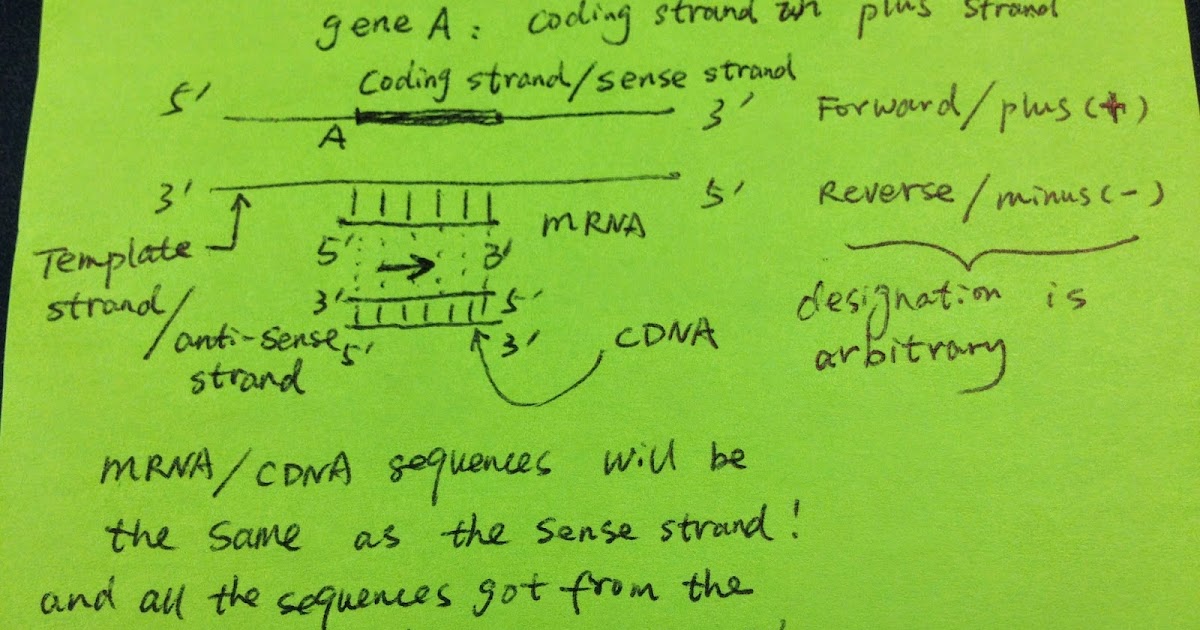 gene A: Coding strand in plus strand
Coding strand/sense strand
5' 3' Forward/plus(+)
A
3' 5' Reverse/minus(-)
mRNA
5' 3'
Template
strand/
anti-sense
strand
3' 5'
5' 3'
CDNA
designation is
arbitrary
mRNA/CDNA sequences will be
the same as the sense strand!
and all the sequences got from the